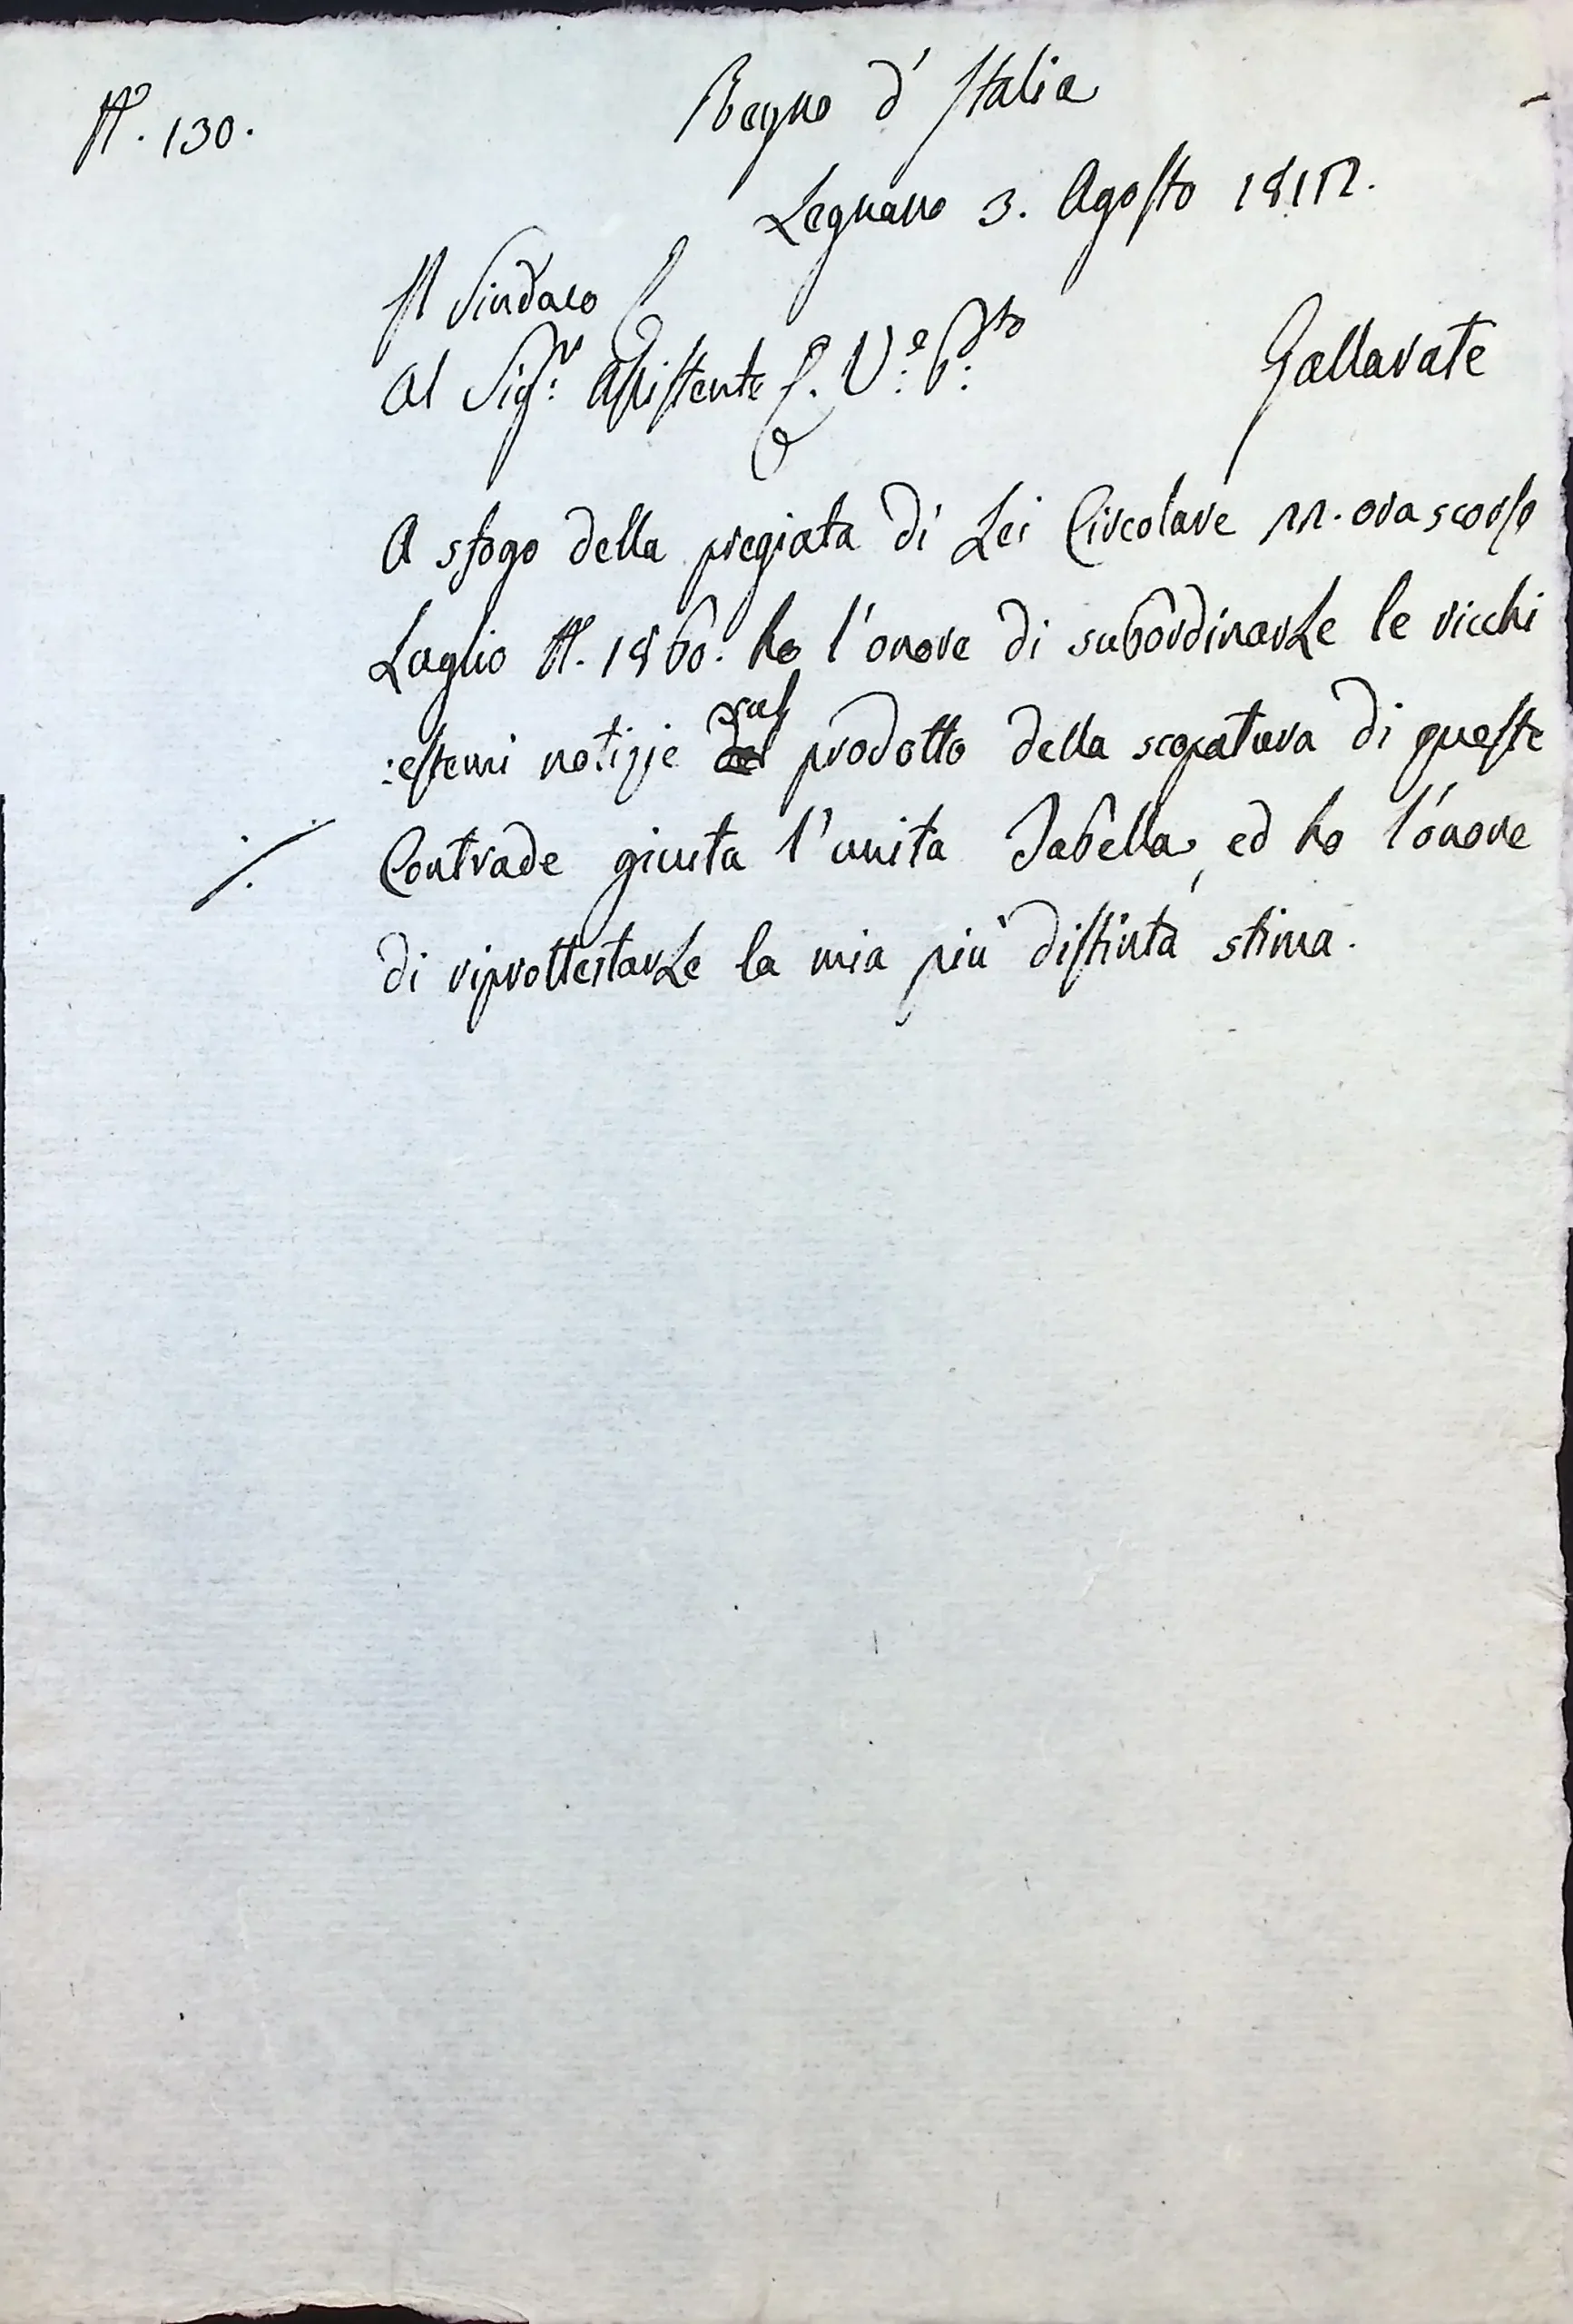 N.º 130.
Regno d'Italia
Legnano 3. Agosto 1812.
Il Sindaco
Al Sig.r Assistente f. V.e P.fto
Gallarate
A sfogo della pregiata di Lei Circolare 22. ora scorso
Luglio N.º 1860. ho l'onore di subordinarLe le ricchi
:estemi notizie sul prodotto della scopatura di queste
Contrade giusta l'unita Tabella, ed ho l'onore
di riprottestarLe la mia più distinta stima.